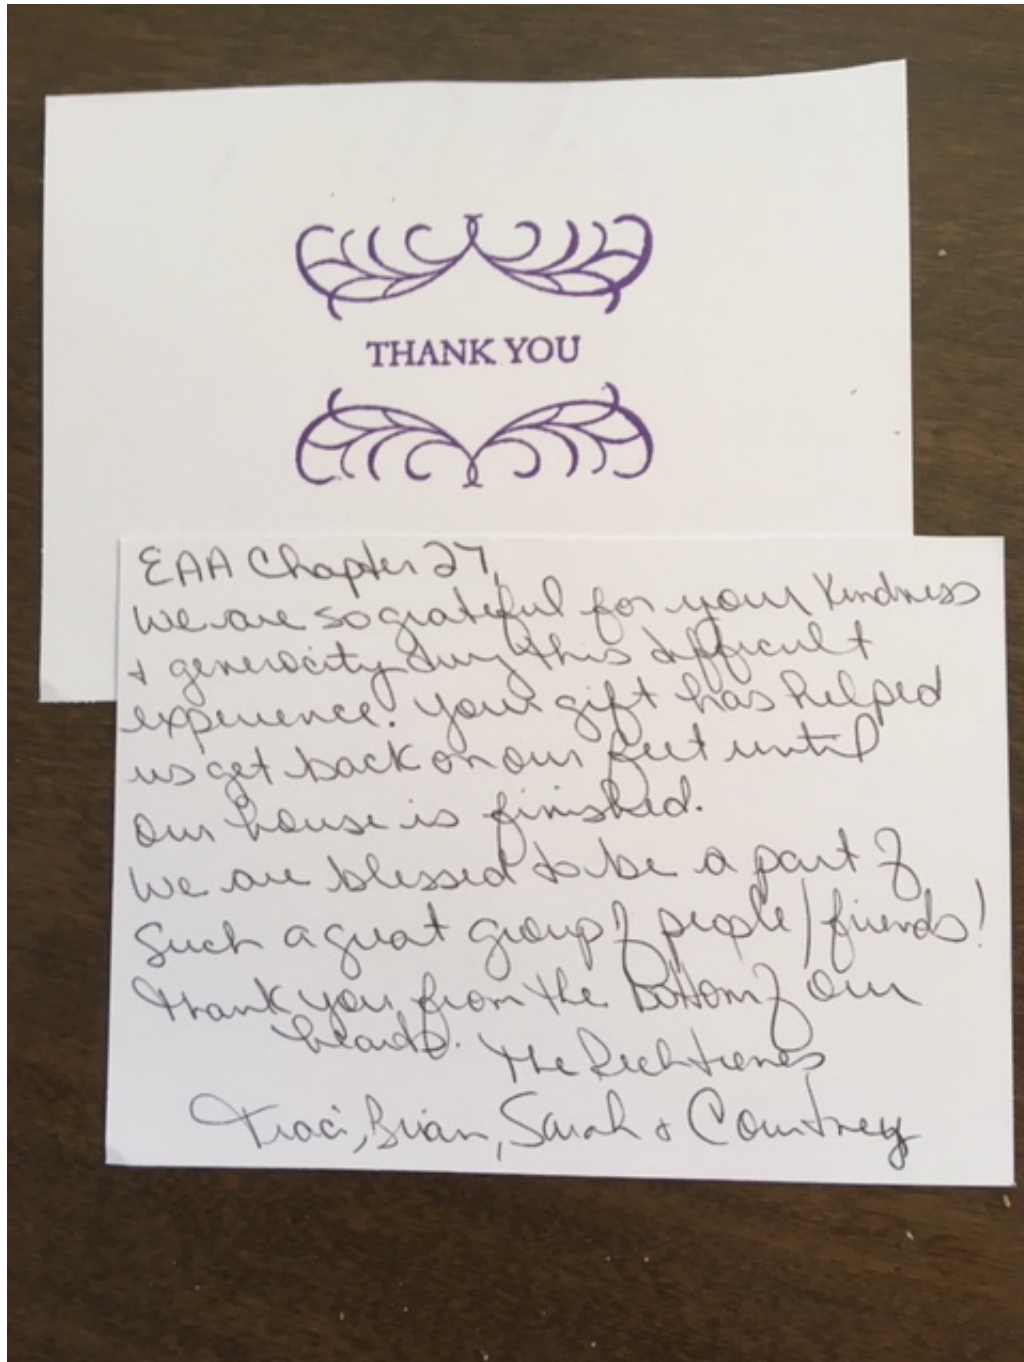 THANK YOU
EAA Chapter 27,
We are so grateful for your kindness
+ generocity during this difficult
experience. Your gift has helped
us get back on our feet until
our house is finished.
We are blessed to be a part of
such a great group of people/friends!
Thank you from the bottom of our
hearts. The
Traci, Brian, Sarah & Courtney